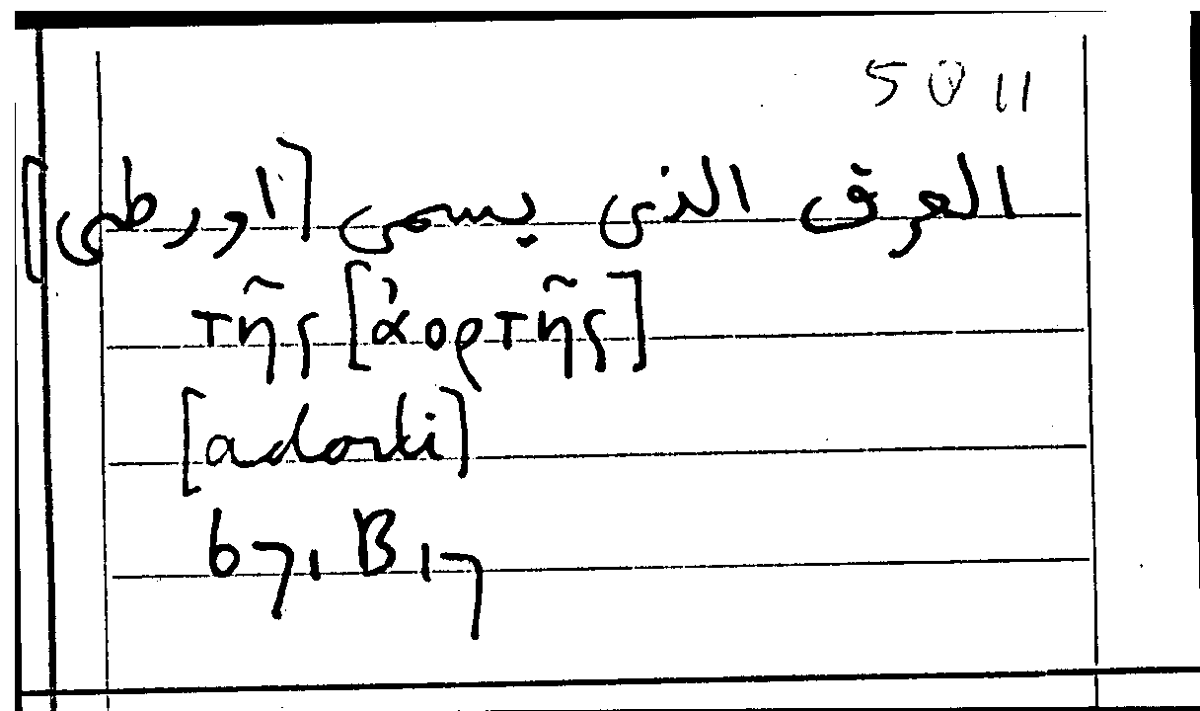 5011
العرق الذى يسمى [اورطى]
τῆς [ἀορτῆς]
[adorti]
671 B 17